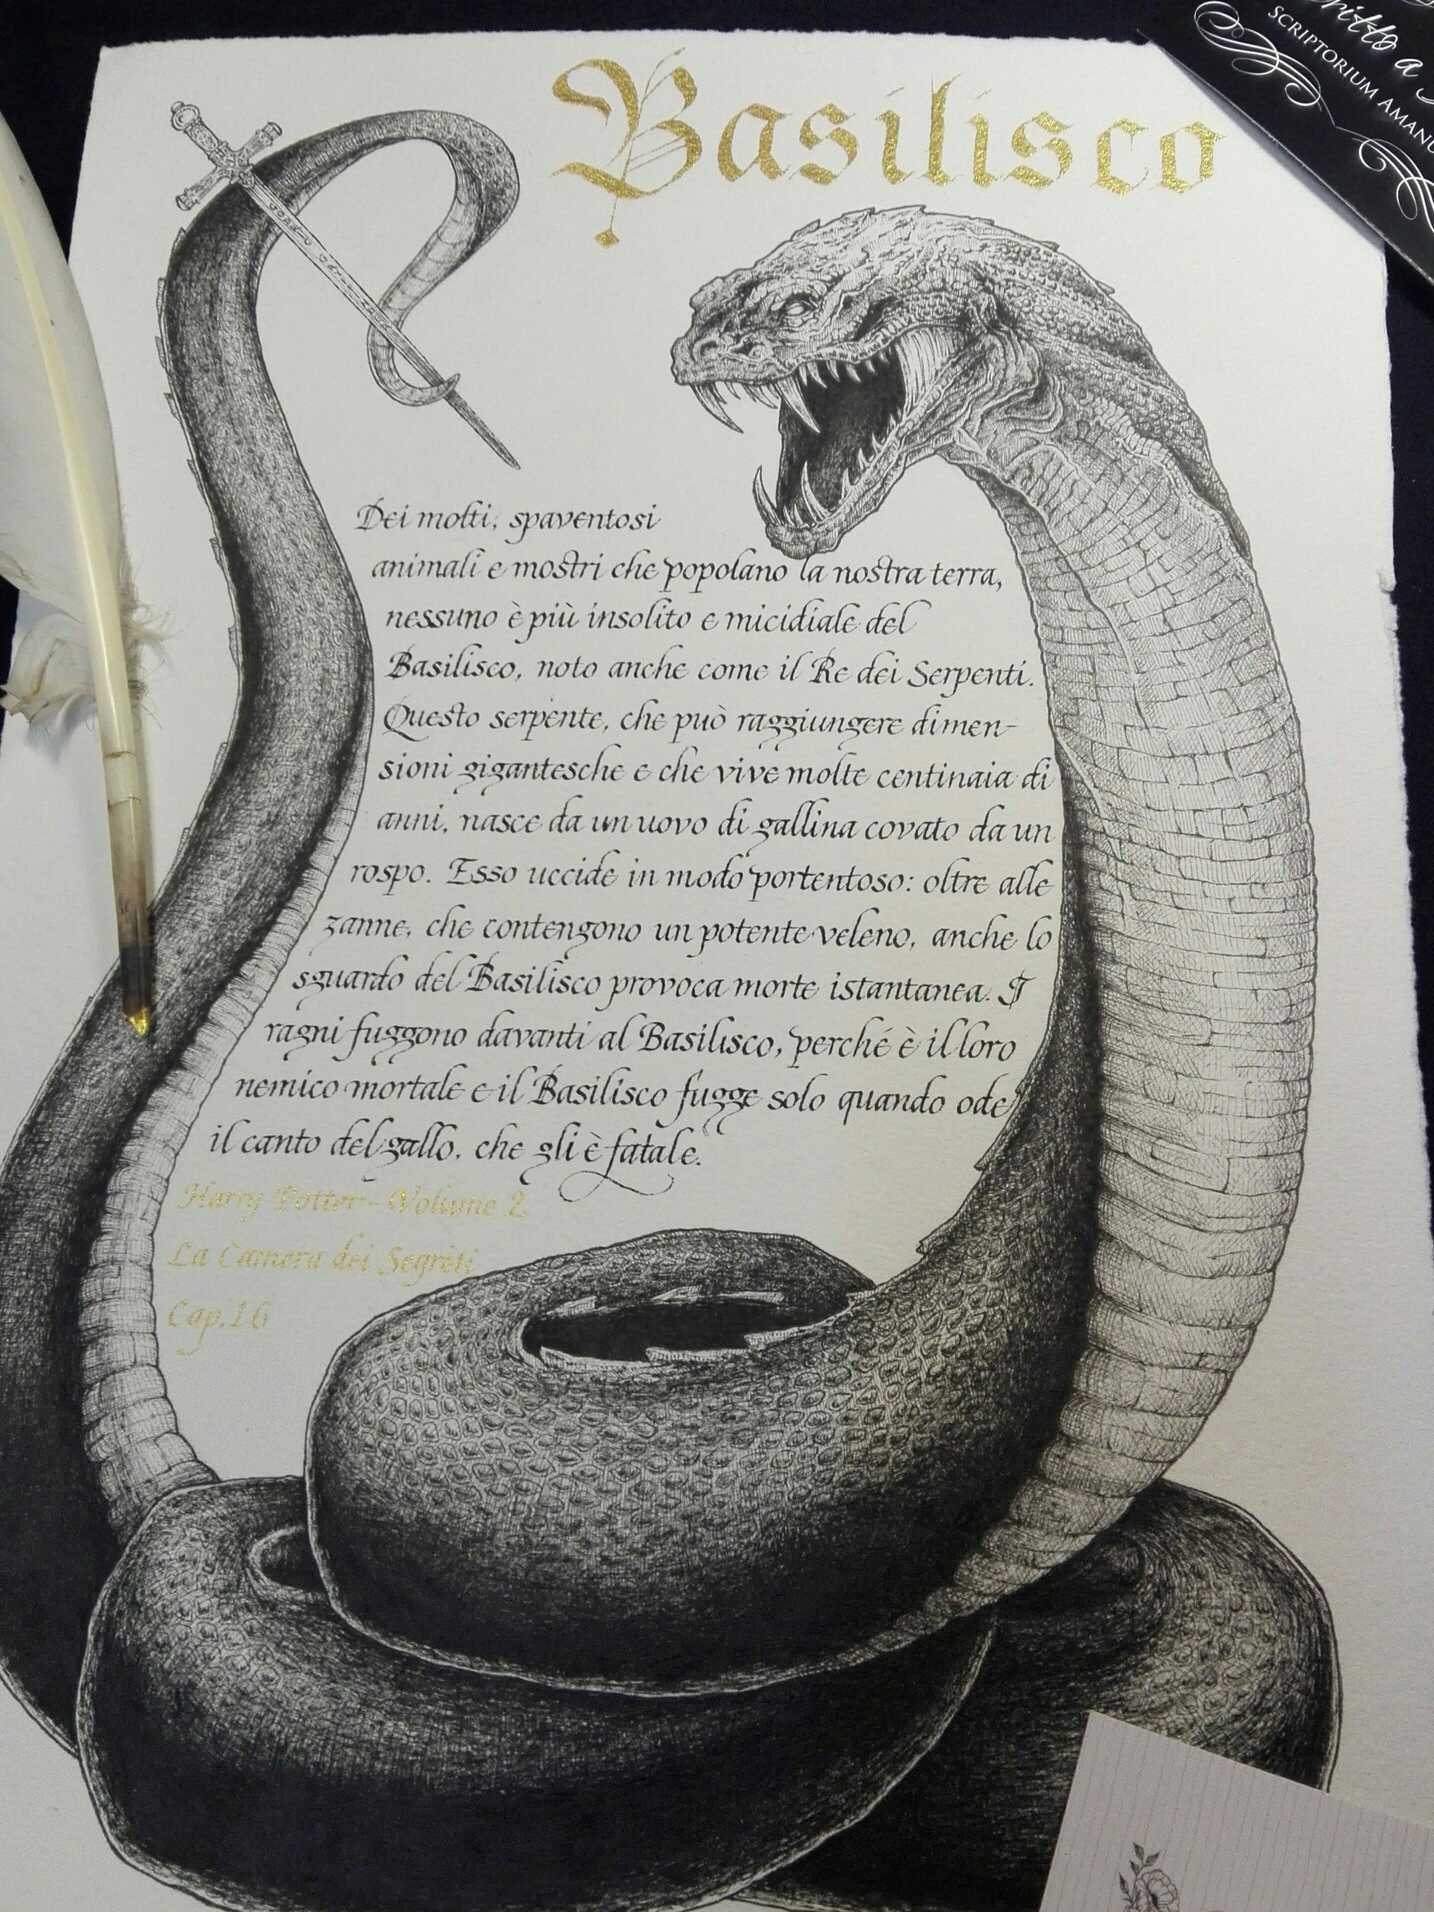 Basilisco
SCRIPTORIUM
Dei molti, spaventosi
animali e mostri che popolano la nostra terra,
nessuno è più insolito e micidiale del
Basilisco, noto anche come il Re dei Serpenti.
Questo serpente, che può raggiungere dimen-
sioni gigantesche e che vive molte centinaia di
anni, nasce da un uovo di gallina covato da un
rospo. Esso uccide in modo portentoso: oltre alle
zanne, che contengono un potente veleno, anche lo
sguardo del Basilisco provoca morte istantanea. I
ragni fuggono davanti al Basilisco, perché è il loro
nemico mortale e il Basilisco fugge solo quando ode
il canto del gallo, che gli è fatale.
Harry Potter - Volume 2
La Camera dei Segreti
Cap.16